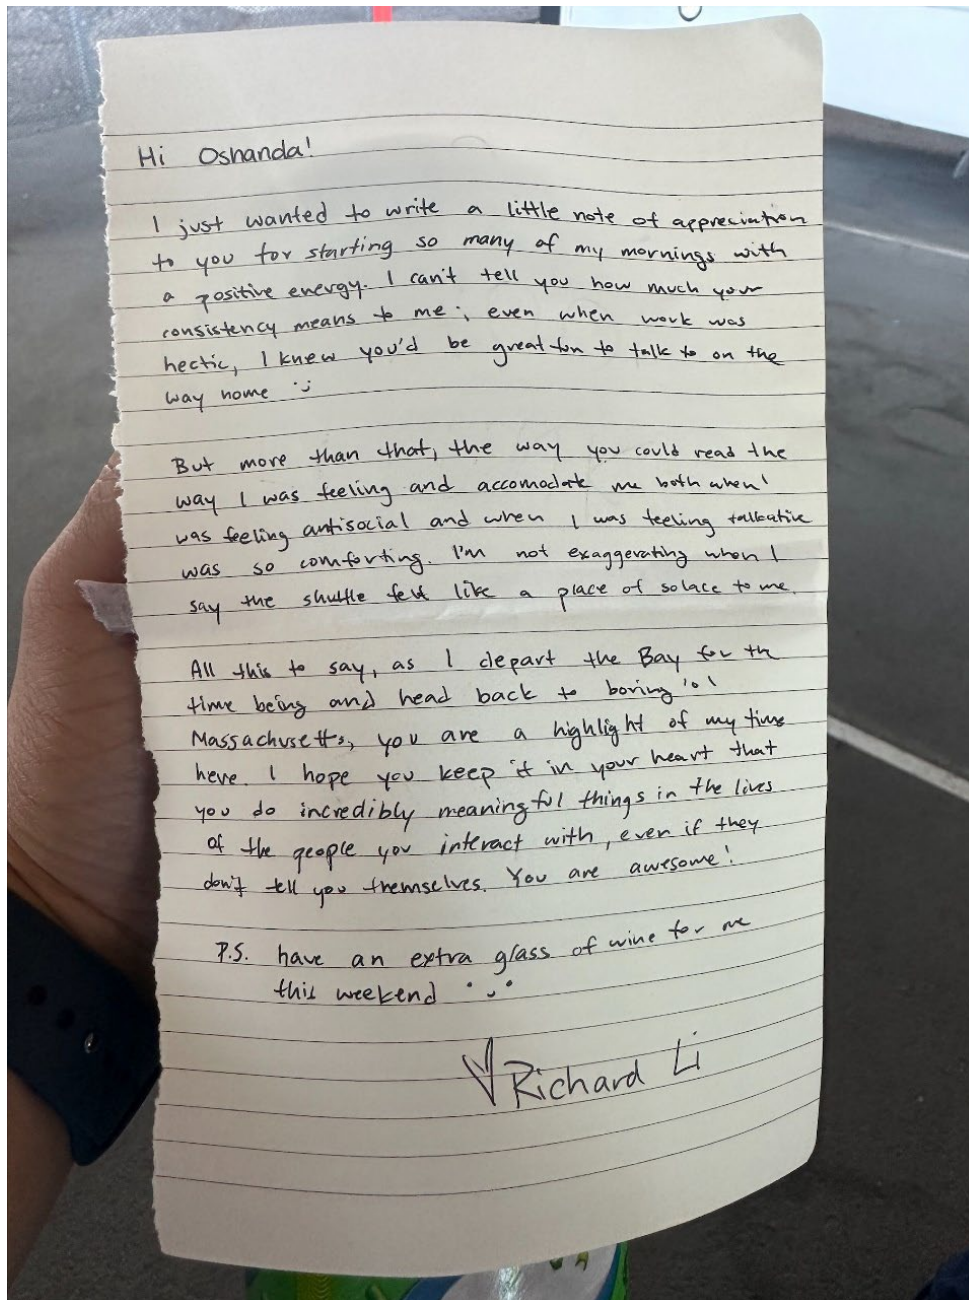 Hi Oshanda!
I just wanted to write a little note of appreciation
to you for starting so many of my mornings with
a positive energy. I can't tell you how much your
consistency means to me; even when work was
hectic, I knew you'd be great fun to talk to on the
way home :)
But more than that, the way you could read the
way I was feeling and accomodate me both when I
was feeling antisocial and when I was feeling talkative
was so comforting. I'm not exaggerating when I
say the shuttle felt like a place of solace to me.
All this to say, as I depart the Bay for the
time being and head back to boring 'ol
Massachusetts, you are a highlight of my time
here. I hope you keep it in your heart that
you do incredibly meaningful things in the lives
of the people you interact with, even if they
don't tell you themselves. You are awesome!
P.S. have an extra glass of wine for me
this weekend :)
♡ Richard Li